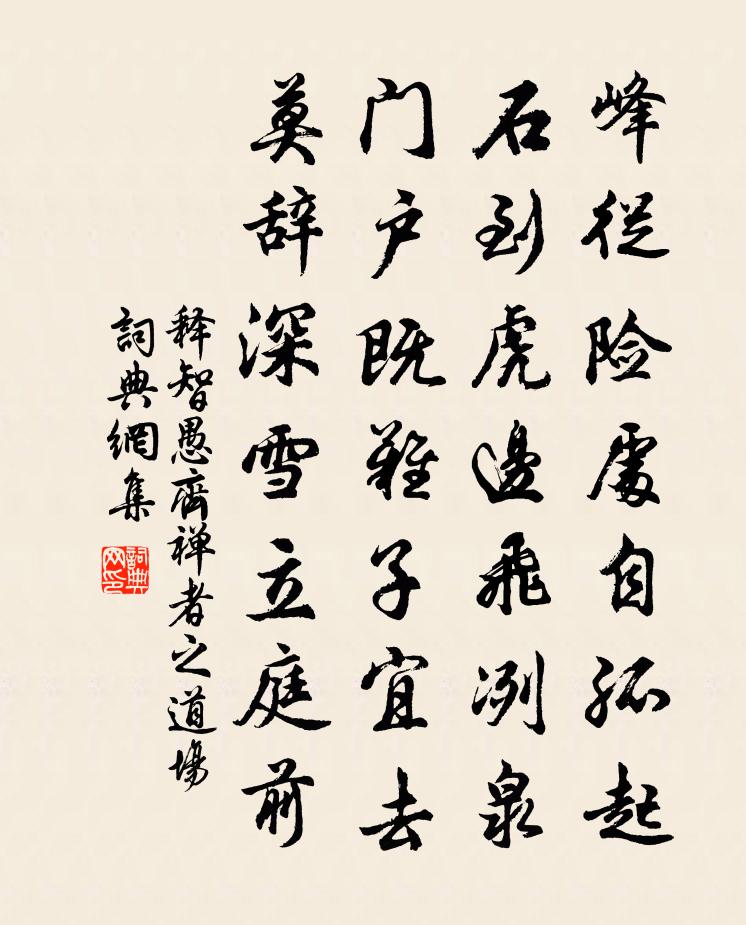 峰從险處自孤起
石到虎邊飛冽泉
门户既難子宜去
莫辞深雪立庭前
释智愚齊禅者之道場
詞典網集
詞典网印